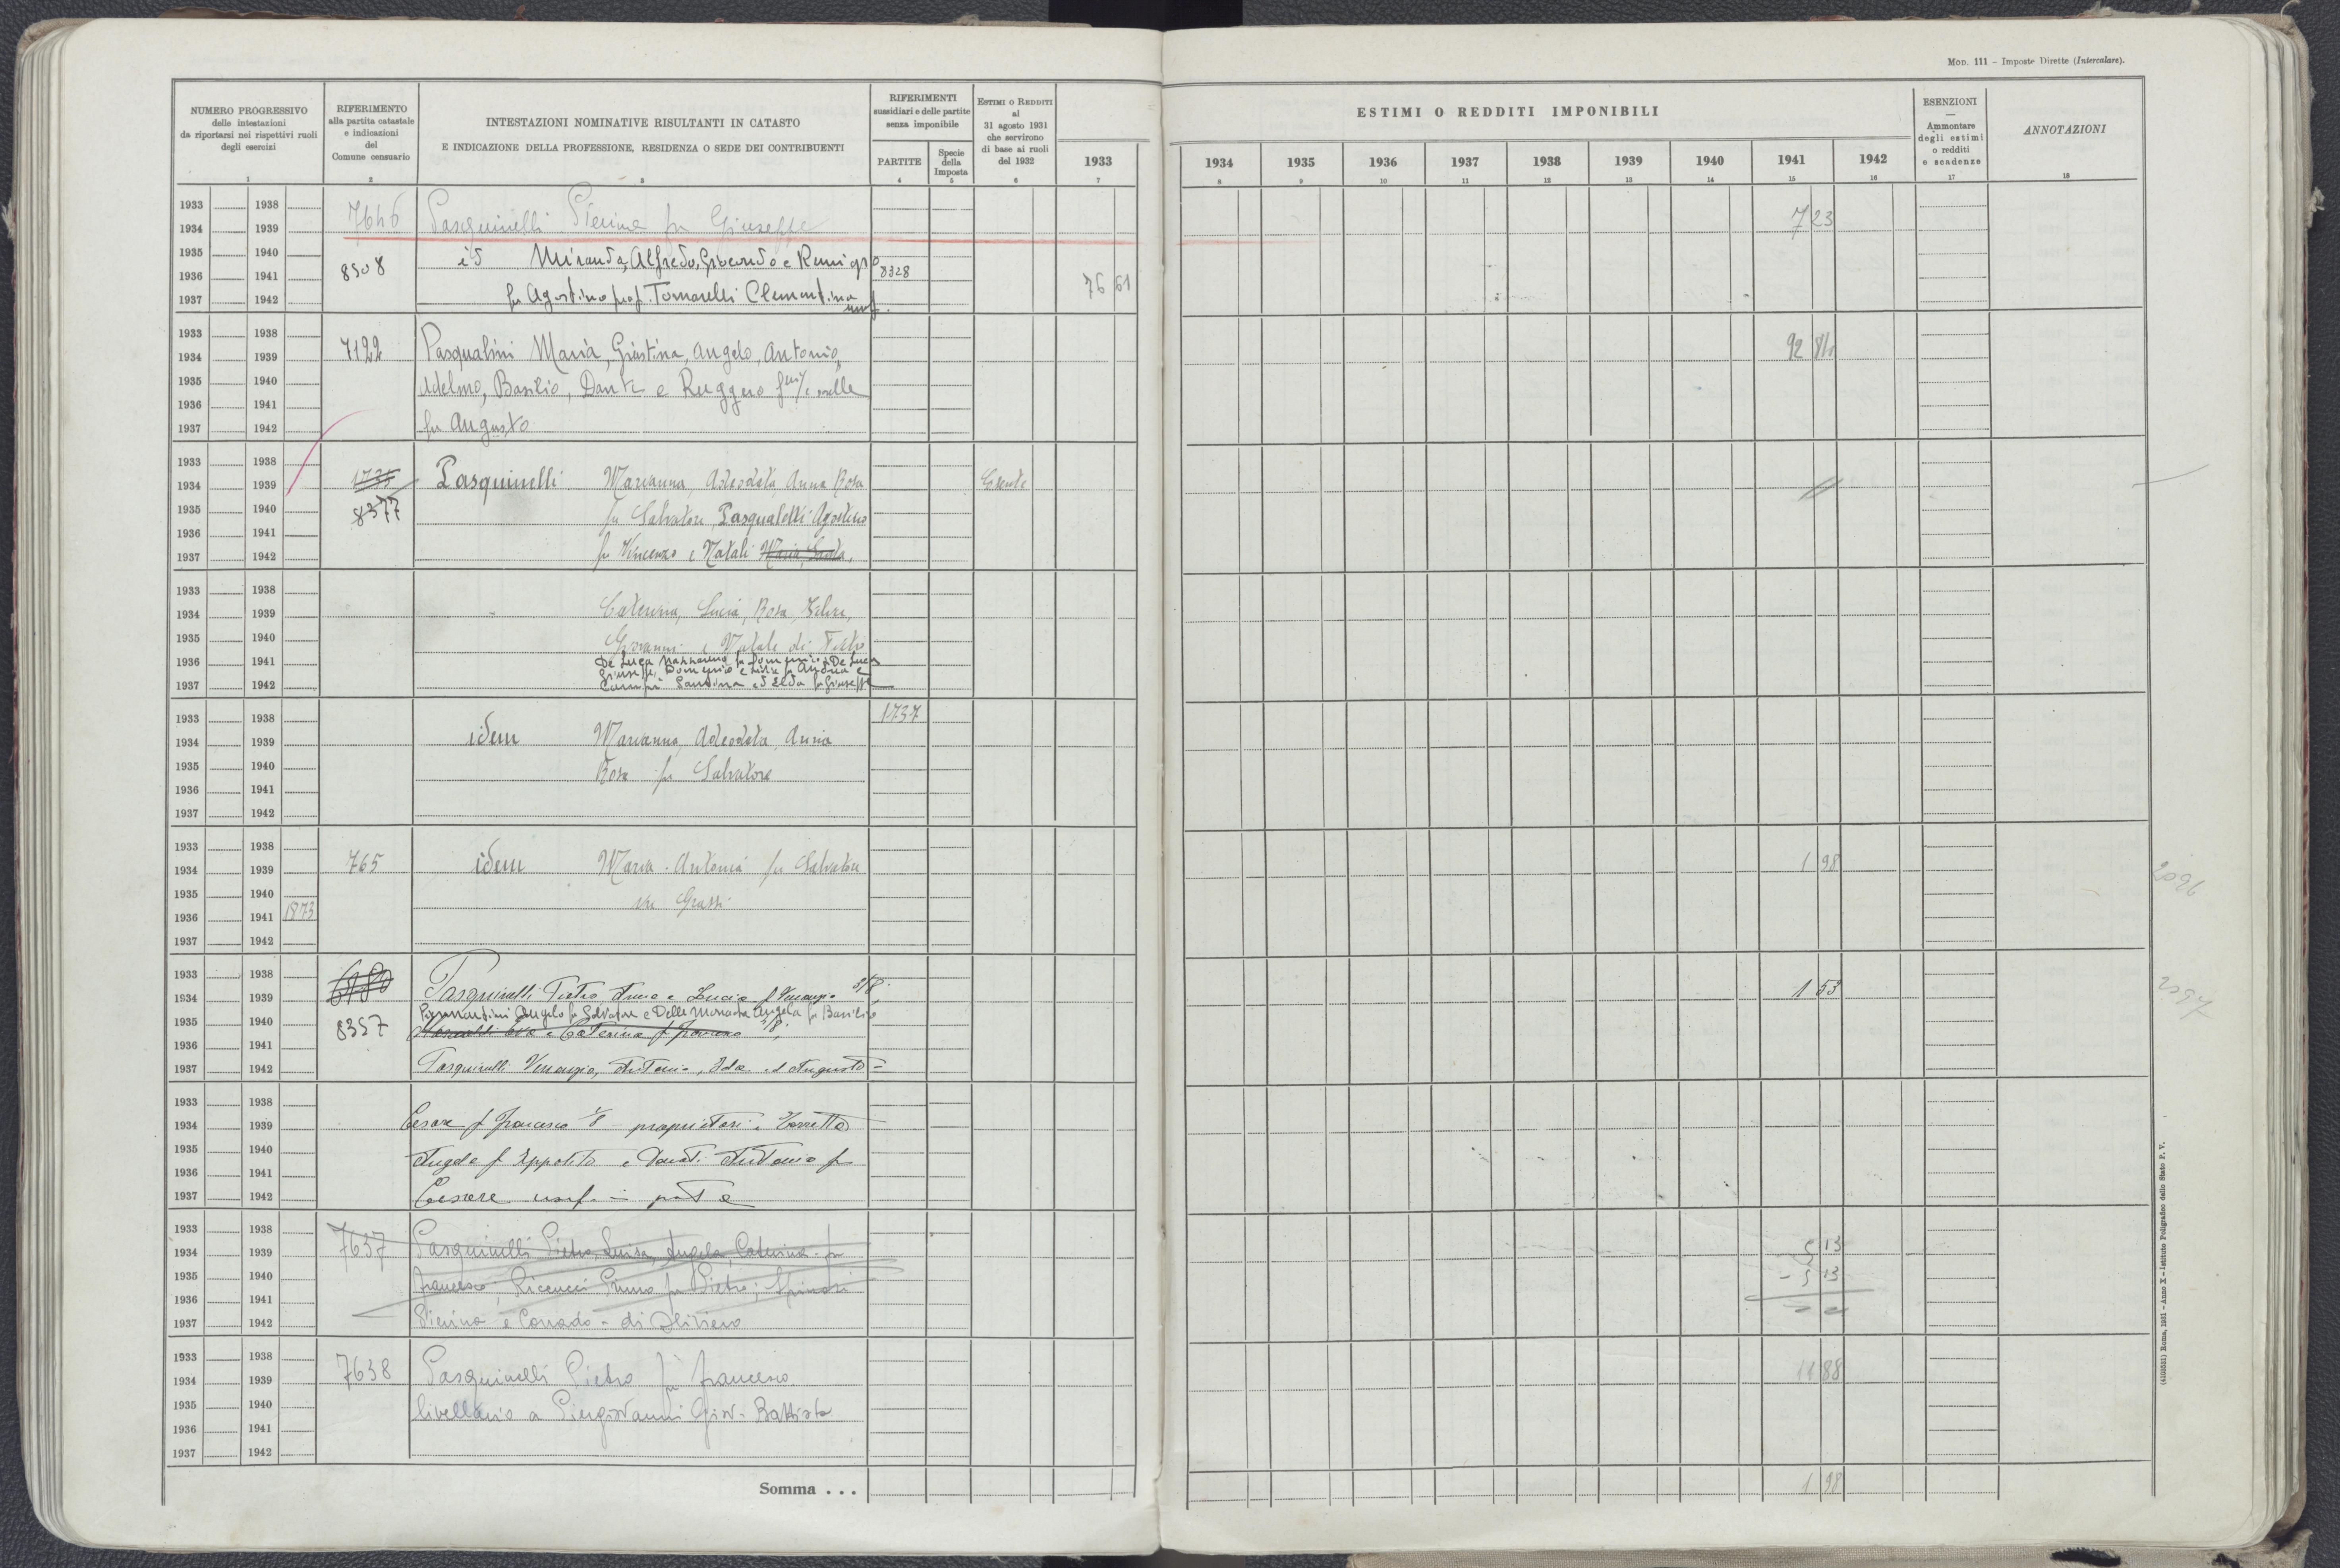 Mod. 111 - Imposte Dirette (Intercalare).
NUMERO PROGRESSIVO
delle intestazioni
da riportarsi nei rispettivi ruoli
degli esercizi
1
RIFERIMENTO
alla partita catastale
e indicazioni
del
Comune censuario
2
INTESTAZIONI NOMINATIVE RISULTANTI IN CATASTO
E INDICAZIONE DELLA PROFESSIONE, RESIDENZA O SEDE DEI CONTRIBUENTI
3
RIFERIMENTI
sussidiari e delle partite
senza imponibile
PARTITE
4
Specie
della
Imposta
5
Estimi o Redditi
al
31 agosto 1931
che servirono
di base ai ruoli
del 1932
6
ESTIMI O REDDITI IMPONIBILI
1933 1934 1935 1936 1937 1938 1939 1940 1941 1942
7 8 9 10 11 12 13 14 15 16
ESENZIONI
—
Ammontare
degli estimi
o redditi
e scadenze
17
ANNOTAZIONI
18
1933 1938
1934 1939 7646 Pasquinelli Pierina fu Giuseppe 7 23
1935 1940 id Miranda, Alfredo, Giocondo e Remigio
1936 1941 8508 8328
1937 1942 fu Agostino prop. Tomarelli Clementina 76 61
usuf.
1933 1938
1934 1939 7122 Pasqualini Maria, Giustina, Angelo, Antonio, 92 84
1935 1940 Adelmo, Basilio, Dante e Ruggero f.lli e sorelle
1936 1941
1937 1942 fu Augusto
1933 1938
1934 1939 1735 Pasquinelli Marianna, Adeodata, Anna Rosa Esente
1935 1940 8377 fu Salvatore, Pasqualetti Agostino
1936 1941
1937 1942 fu Vincenzo e Natali Maria,
1933 1938
1934 1939 Caterina, Lucia, Rosa,
1935 1940 Giovanni e Natale di Pietro
1936 1941 De Luca Nazzareno fu Domenico, De Luca
Giuseppe, Domenico e fu Andrea e
1937 1942 Santina ed Elda fu Giuseppe
1933 1938 1737
1934 1939 idem Marianna, Adeodata, Anna
1935 1940 Rosa fu Salvatore
1936 1941
1937 1942
1933 1938
1934 1939 765 idem Maria Antonia fu Salvatore 1 98 2096
1935 1940 Grassi
1936 1941 1873
1937 1942
1933 1938
1934 1939 6180 Pasquinelli Pietro, Anna e Lucia f Venanzio 3/8; 1 53 2097
1935 1940 Piermartini Angelo fu Salvatore e Delle Monache Angela fu Basilio
1936 1941 8357 e Caterina f
1937 1942 Pasquinelli Venanzio, Antonio, Ida ed Augusto =
1933 1938
1934 1939 Cesare f Francesco 1/8 proprietari e
1935 1940 Angela f Ippolito e Donati Antonio f
1936 1941
1937 1942 Cesare usuf. in parte
1933 1938
1934 1939 7637 Pasquinelli Pietro, Luisa, Angela, Caterina - fu 5 13
1935 1940 Francesco; Riccucci Primo fu Pietro; Spinosi - 5 13
1936 1941
1937 1942 Pierina e Corrado - di Oliviero
1933 1938
1934 1939 7638 Pasquinelli Pietro fu Francesco 11 88
1935 1940 livellario a Piergiovanni Giov. Battista
1936 1941
1937 1942
Somma . . . 1 98
(4103531) Roma, 1931 - Anno X - Istituto Poligrafico dello Stato P. V.